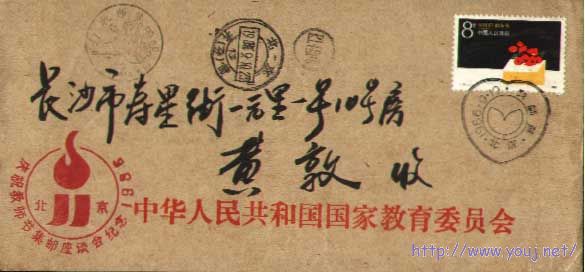 8分
中国人民邮政
长沙市寿星街一里一号10号房
黄敦 收
庆祝教师节集邮座谈会纪念 1986
北京
中华人民共和国国家教育委员会
http://www.youj.net/